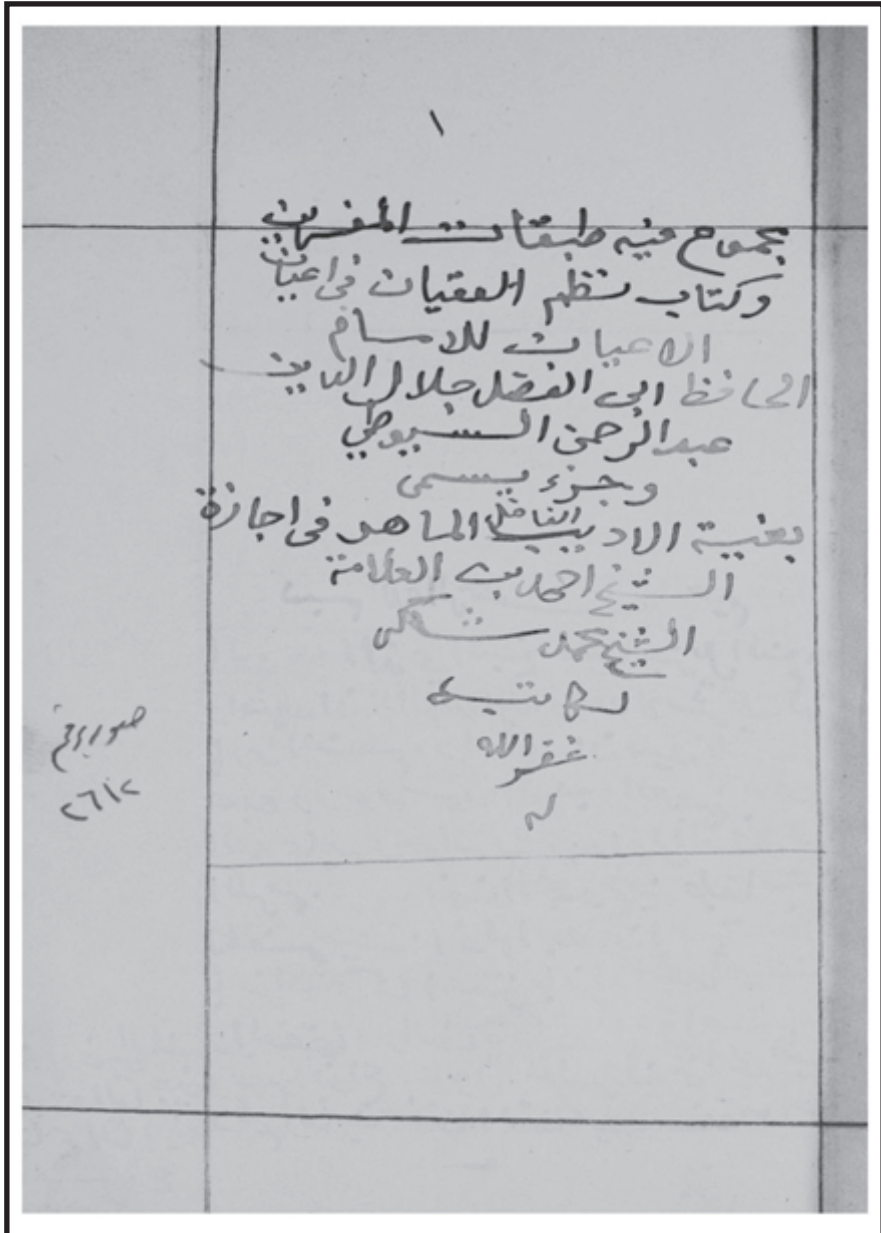 ١
مجموع فيه طبقات المفسرين
وكتاب نظم العقيان في اعيان
الاعيان للامام
الحافظ ابى الفضل جلال الدين
عبد الرحمن السيوطي
وجزء يسمى
بغية الاديب الماهر فى اجازة
الشيخ احمد بن العلامة
الشيخ محمد شاكر
لكاتبه
غفر الله
له
٢٦١٢